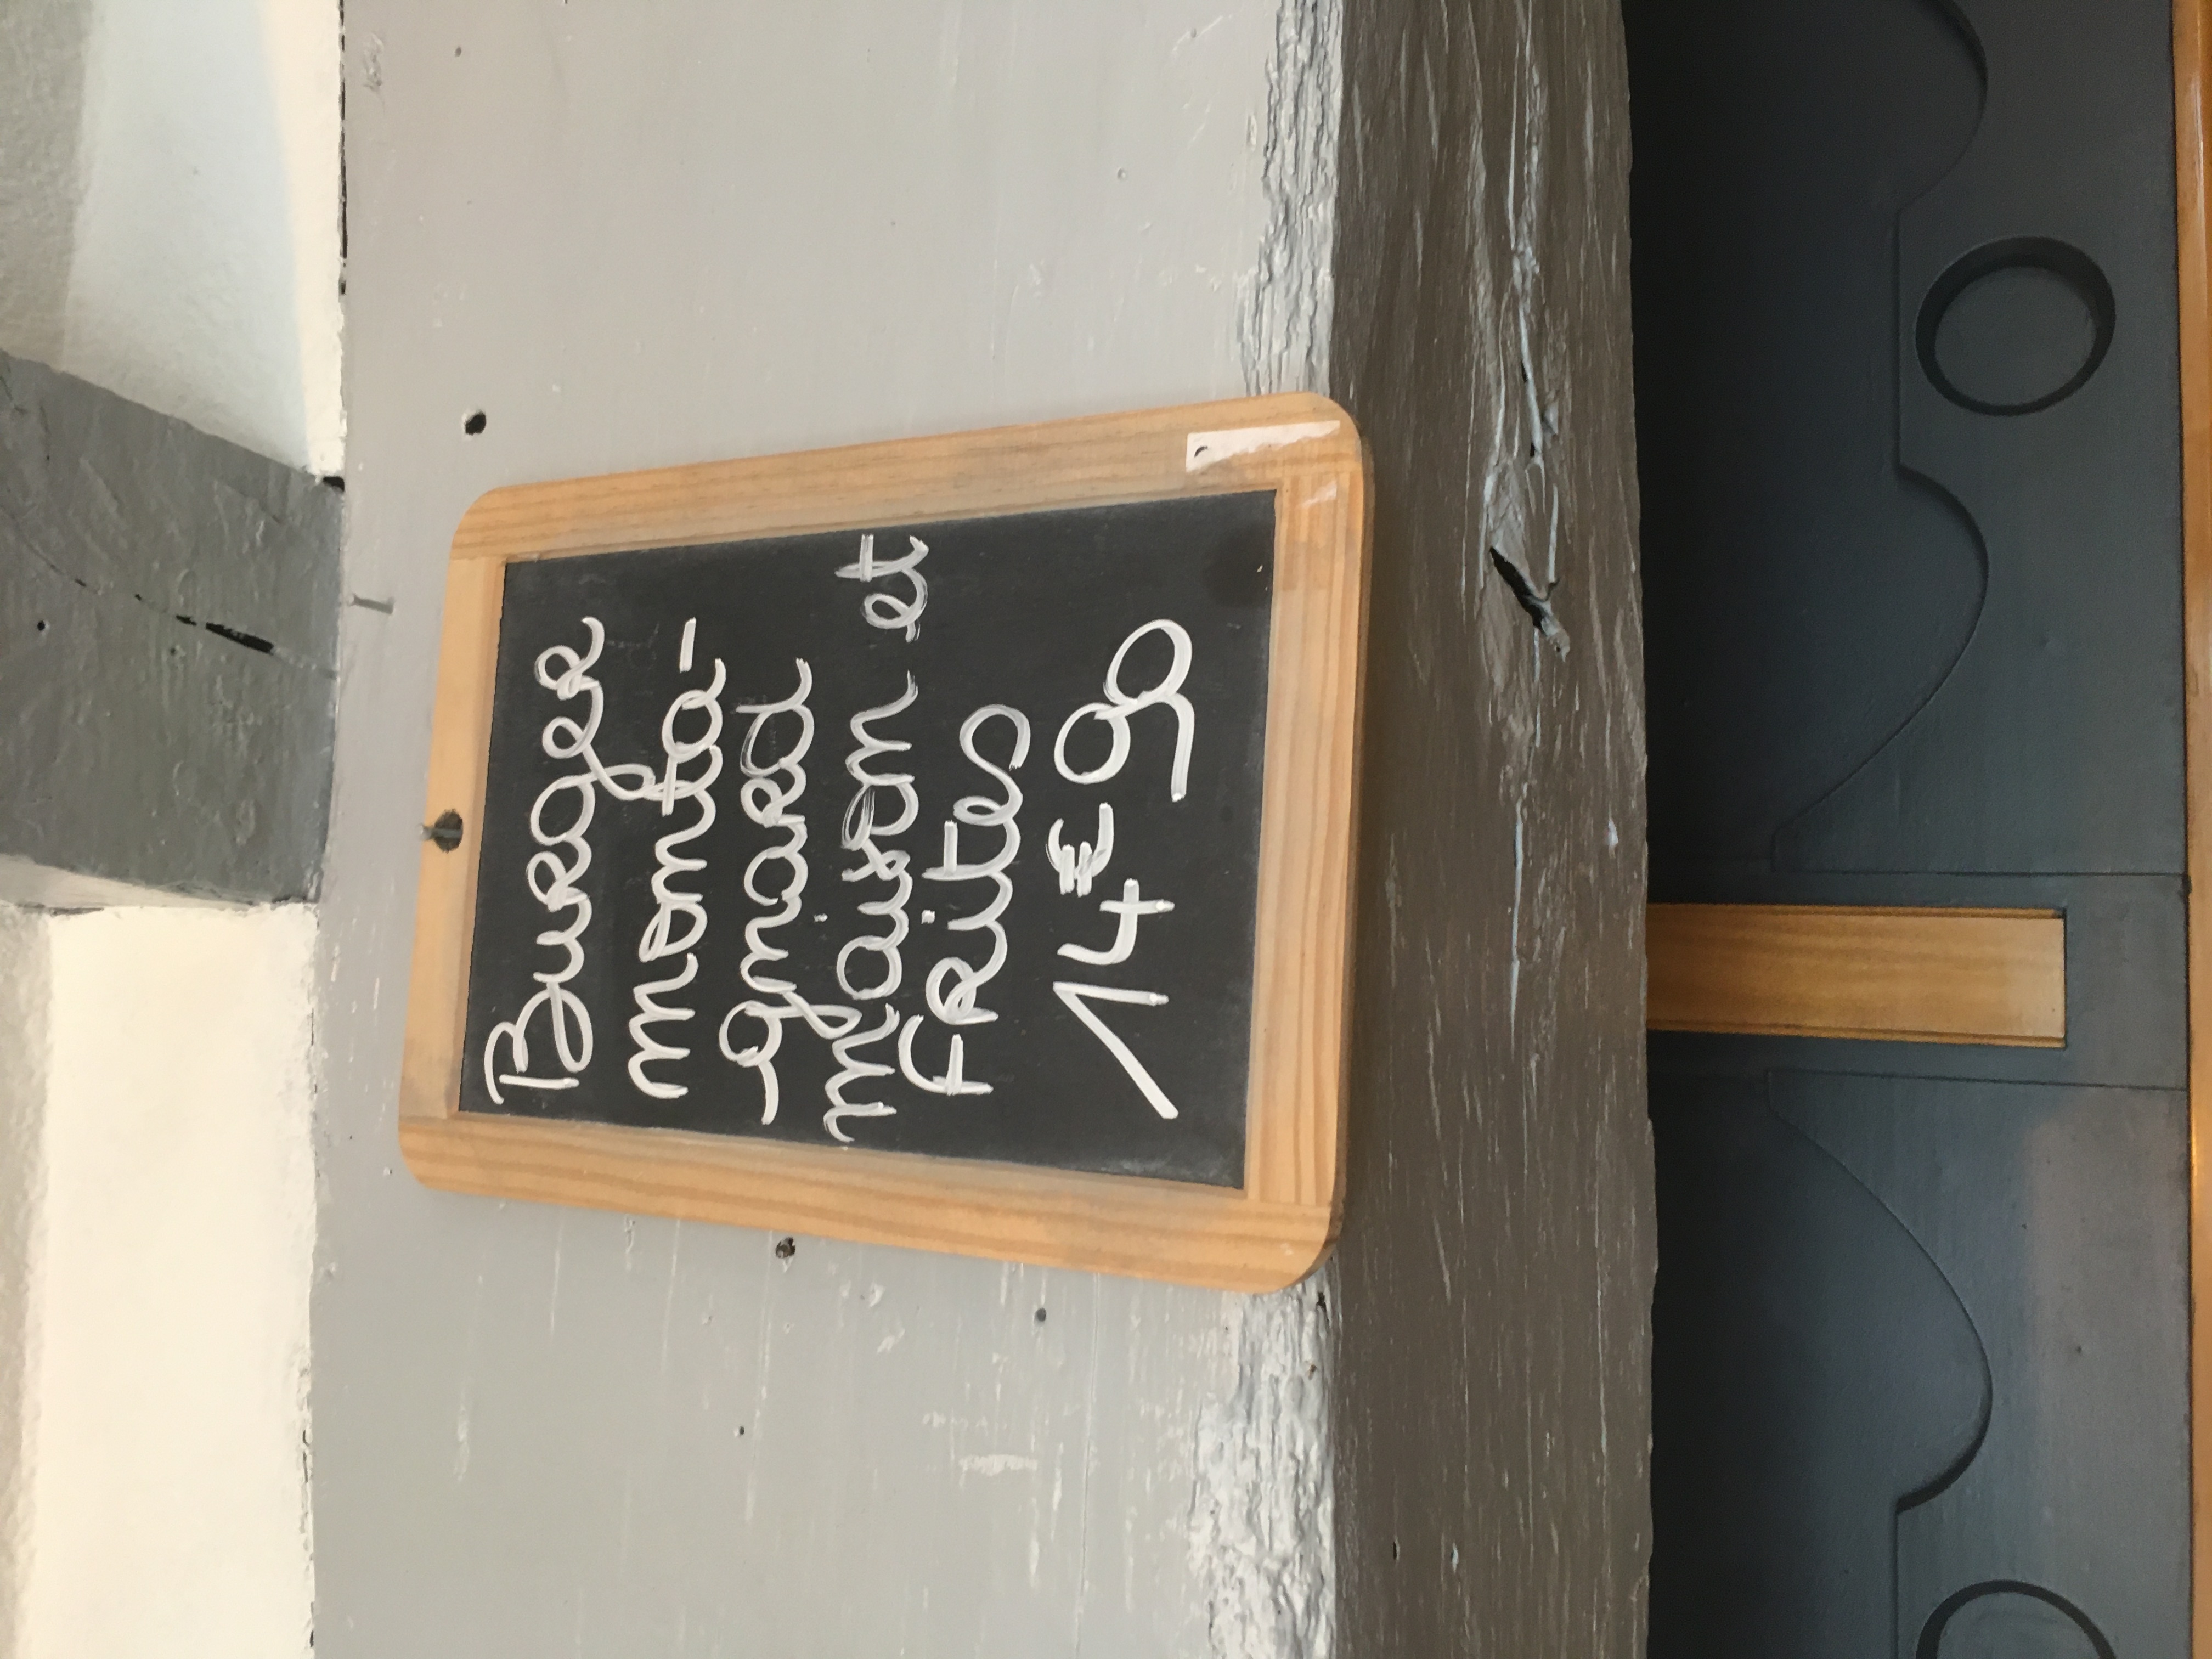 Burger
monta-
gnard
maison et
frites
14€90